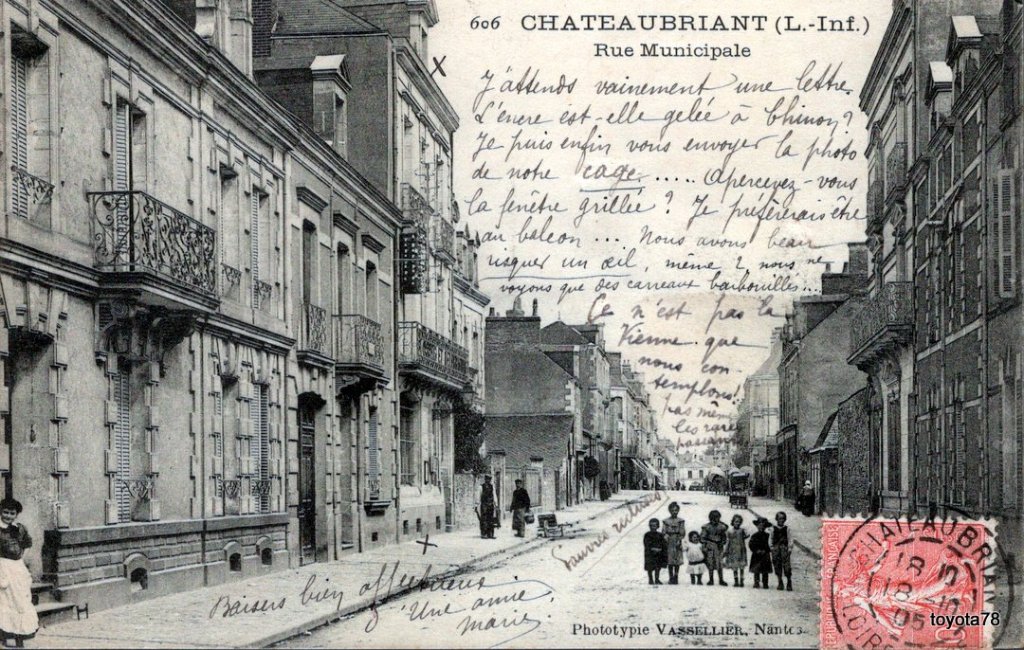 606 CHATEAUBRIANT (L.-Inf.)
Rue Municipale
J'attends vainement une lettre
L'encre est-elle gelée à Chinon?
Je puis enfin vous envoyer la photo
de notre cage..... Apercevez-vous
la fenêtre grillée? Je préfèrerais être
au balcon.... Nous avons beau
risquer un œil, même 2 nous ne
voyons que des carreaux barbouillés...
Ce n'est pas la
Vienne que
nous con-
templons!
pas même
les rares
passants
Pauvres recluses
Baisers bien affectueux
Une amie
Marie
H
Phototypie VASSELLIER, Nantes
RÉPUBLIQUE FRANÇAISE
10
CHATEAUBRIANT
18
18
05
LOIRE
toyota78